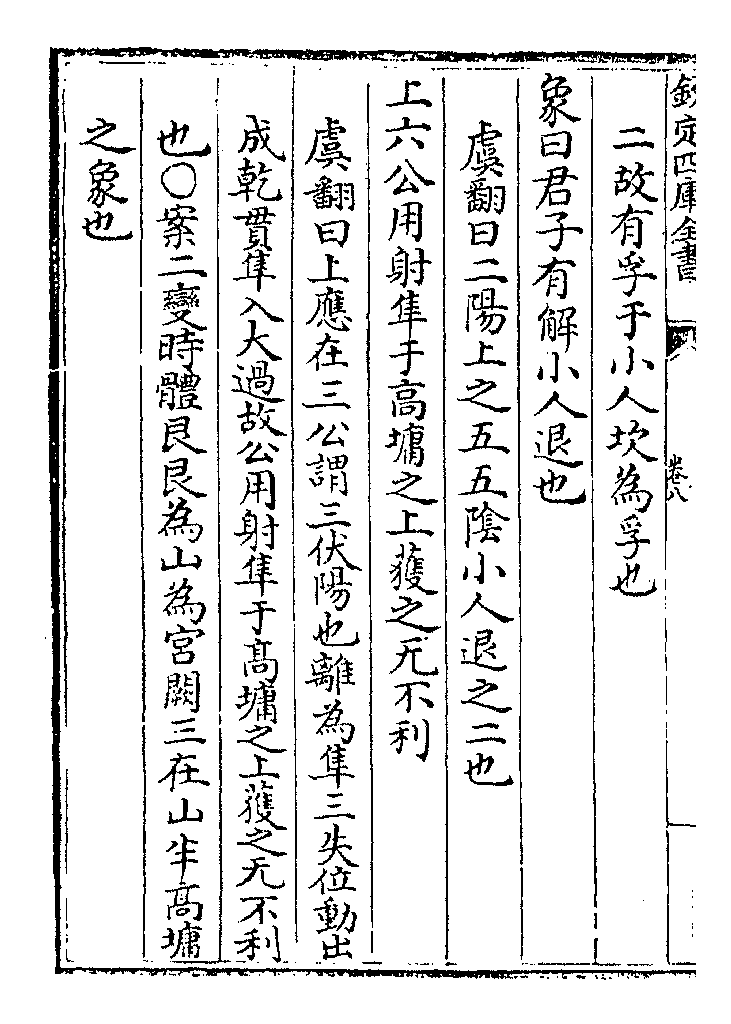 欽定四庫全書
卷八
二故有孚于小人坎為孚也
象曰君子有解小人退也
虞翻曰二陽上之五五陰小人退之二也
上六公用射隼于高墉之上獲之无不利
虞翻曰上應在三公謂三伏陽也離為隼三失位動出
成乾貫隼入大過故公用射隼于髙墉之上獲之无不利
也○案二變時體艮艮為山為宮闕三在山半髙墉
之象也